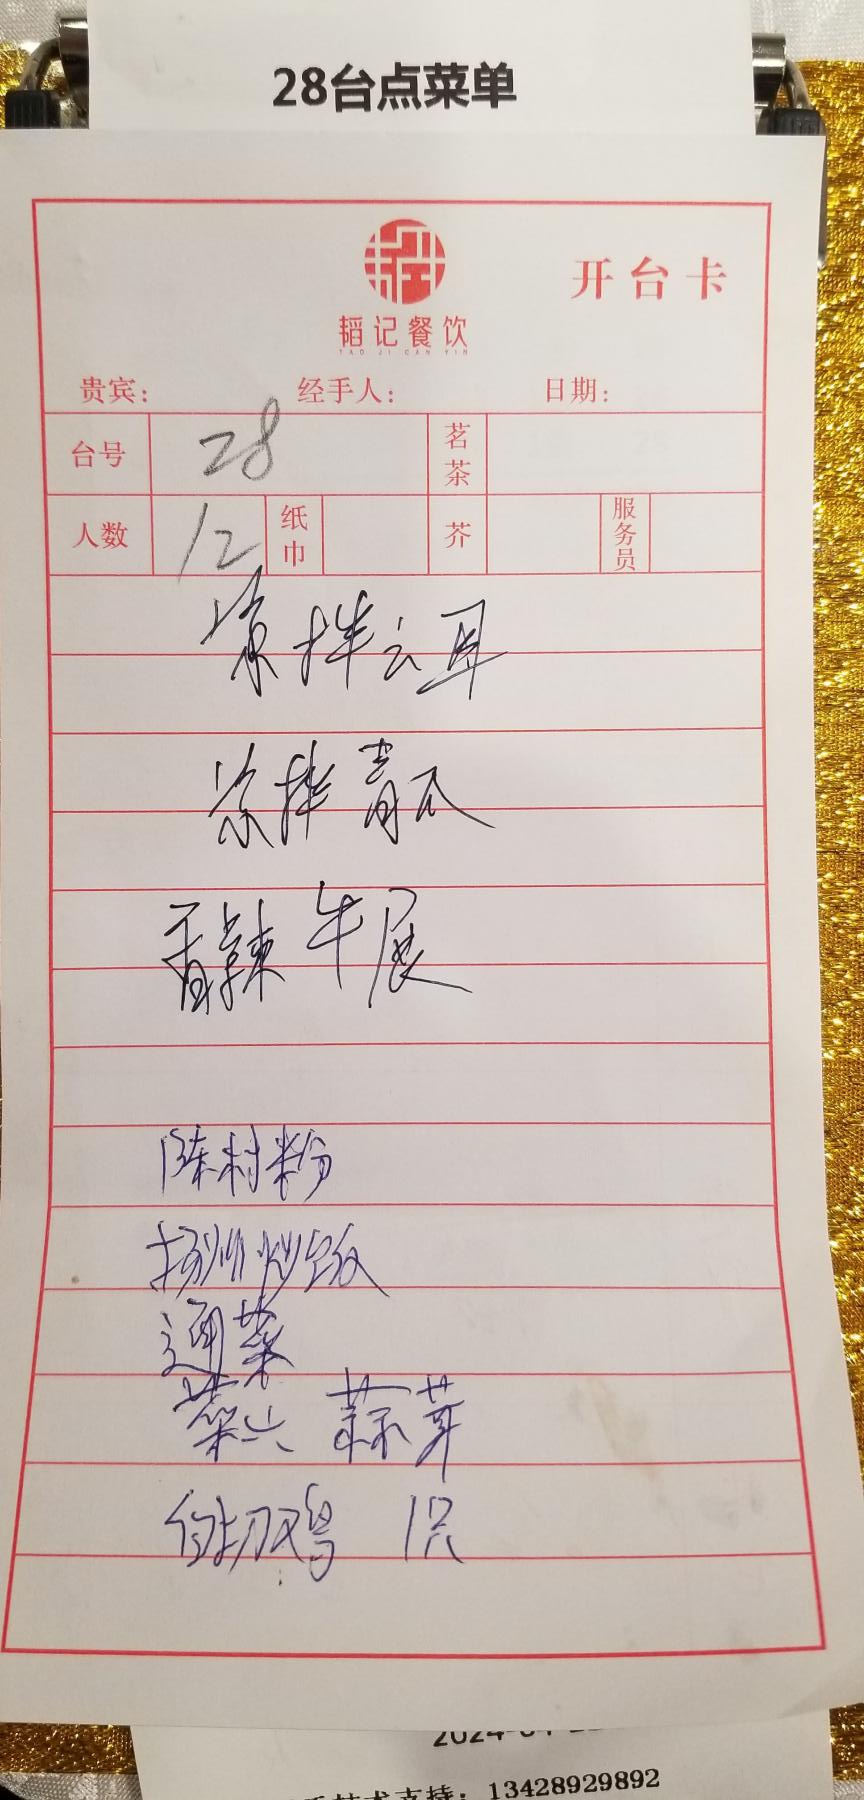 28台点菜单
韬记餐饮
TAO JI CAN YIN
开台卡
贵宾： 经手人： 日期：
台号 28 茗茶
人数 12 纸巾 芥 服务员
凉拌云耳
凉拌青瓜
香辣牛展
陈村粉
扬州炒饭
通菜
菜心 蒜茸
白切鸡 1只
技术支持：13428929892